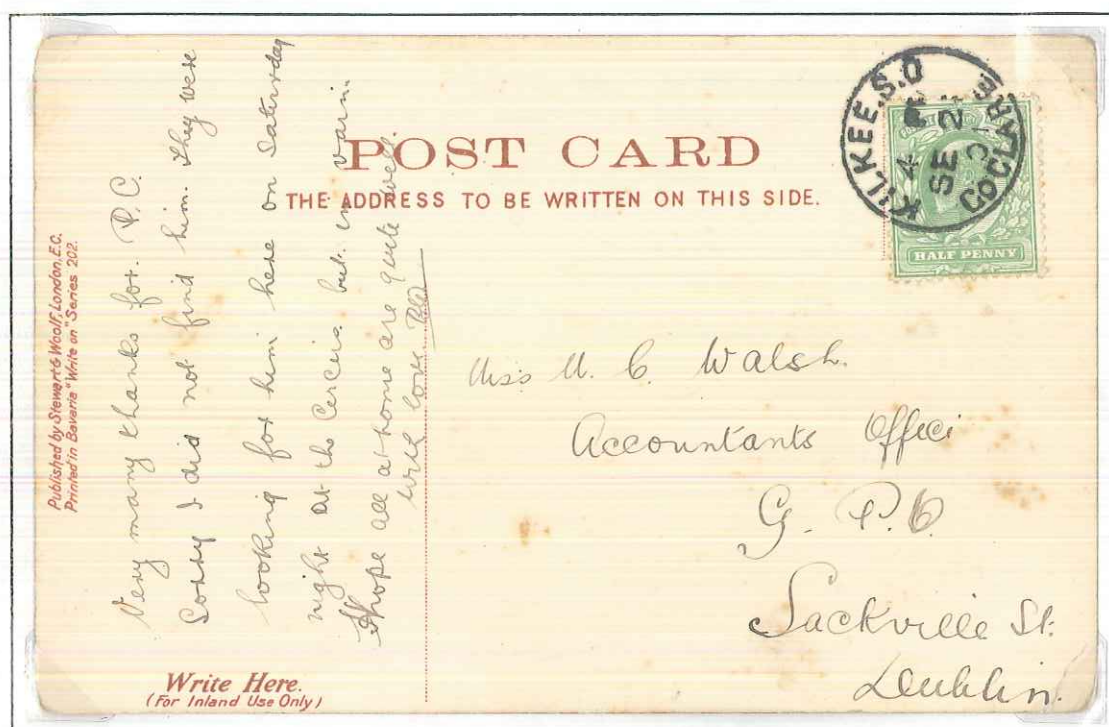 POST CARD
THE ADDRESS TO BE WRITTEN ON THIS SIDE.
KILKEE.S.O
4 PM
SE 2
CO CLARE
HALF PENNY
Published by Stewart & Woolf, London, E.C.
Printed in Bavaria "Write on" Series 202.
Very many thanks for. P.C.
Sorry I did not find him. They were
looking for him here on Saturday
night at the but. in vain.
I hope all at home are quite well
with love.
Write Here.
(For Inland Use Only)
Miss M. C. Walsh.
Accountants Office
G. P. O
Sackville St.
Dublin.